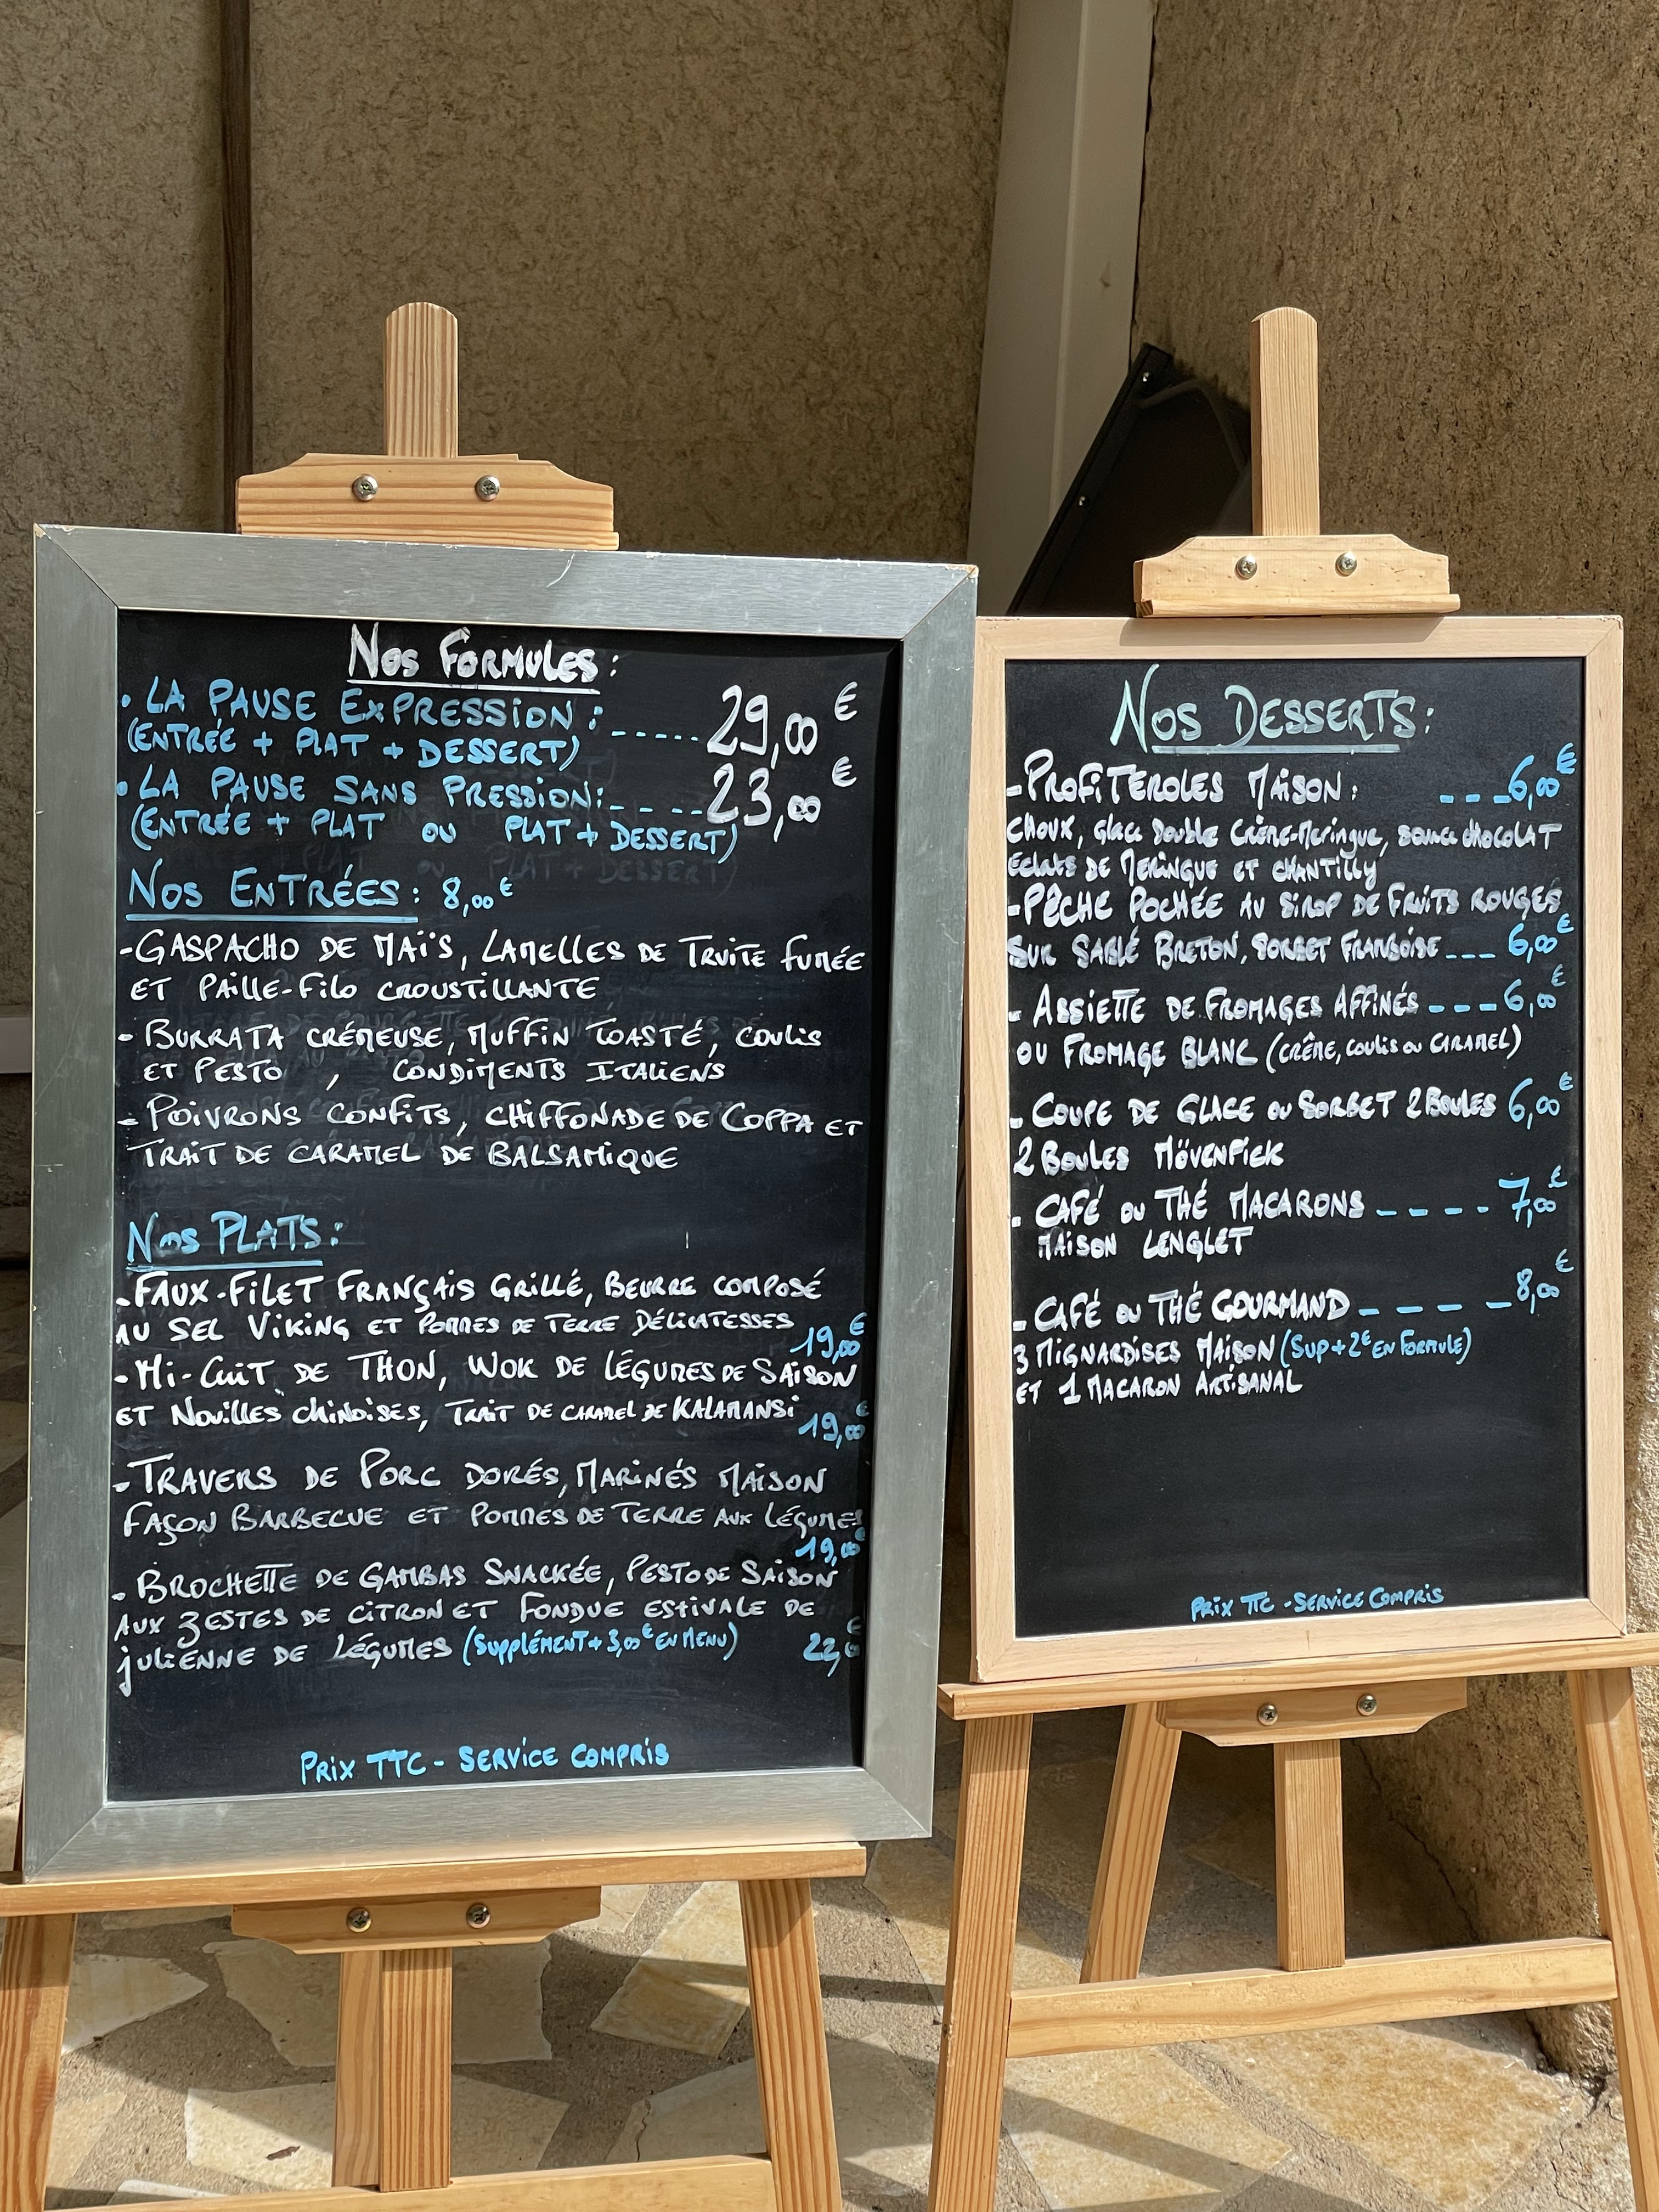 Nos Formules :
• La Pause Expression : ------ 29,00 €
(Entrée + Plat + Dessert)
• La Pause Sans Pression : ----- 23,00 €
(Entrée + Plat ou Plat + Dessert)
Nos Entrées : 8,00 €
- Gaspacho de Maïs, Lamelles de Truite fumée
et Paille-Filo croustillante
- Burrata crémeuse, Muffin Toasté, coulis
et Pesto , condiments Italiens
- Poivrons confits, chiffonade de Coppa et
Trait de caramel de balsamique
Nos Plats :
- Faux-Filet Français Grillé, Beurre composé
au sel Viking et Pommes de Terre Délicatesses
19,00 €
- Mi-Cuit de Thon, wok de légumes de Saison
et Nouilles chinoises, Trait de caramel de Kalamansi
19,00 €
- Travers de Porc Dorés, Marinés Maison
façon Barbecue et Pommes de Terre aux légumes
19,00 €
- Brochette de Gambas Snackée, Pesto de Saison
aux zestes de citron et fondue estivale de
julienne de légumes (Supplément + 3,00 € en Menu) 22,00 €
Prix TTC - Service compris
Nos Desserts :
- Profiteroles Maison : --- 6,00 €
Choux, Glace Double Crème-Meringue, sauce chocolat
Eclats de Meringue et chantilly
- Pêche Pochée au sirop de Fruits rouges
Sur Sablé Breton, sorbet Framboise --- 6,00 €
- Assiette de Fromages Affinés --- 6,00 €
ou Fromage Blanc (crême, coulis ou caramel)
- Coupe de Glace ou Sorbet 2 Boules 6,00 €
2 Boules Mövenpick
- Café ou Thé Macarons ---- 7,00 €
Maison Lenglet
- Café ou Thé Gourmand ---- 8,00 €
3 Mignardises Maison (Sup + 2€ en Formule)
et 1 Macaron Artisanal
Prix TTC - Service compris